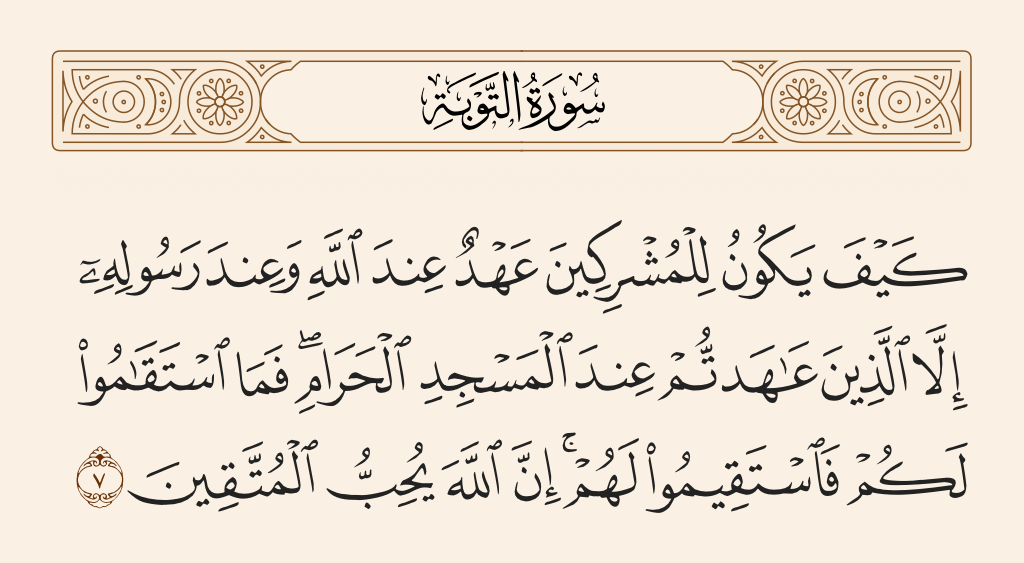 سُورَةُ التَّوْبَةِ
كَيْفَ يَكُونُ لِلْمُشْرِكِينَ عَهْدٌ عِندَ ٱللَّهِ وَعِندَ رَسُولِهِۦٓ
إِلَّا ٱلَّذِينَ عَـٰهَدتُّمْ عِندَ ٱلْمَسْجِدِ ٱلْحَرَامِ ۖ فَمَا ٱسْتَقَـٰمُوا۟
لَكُمْ فَٱسْتَقِيمُوا۟ لَهُمْ ۚ إِنَّ ٱللَّهَ يُحِبُّ ٱلْمُتَّقِينَ ٧